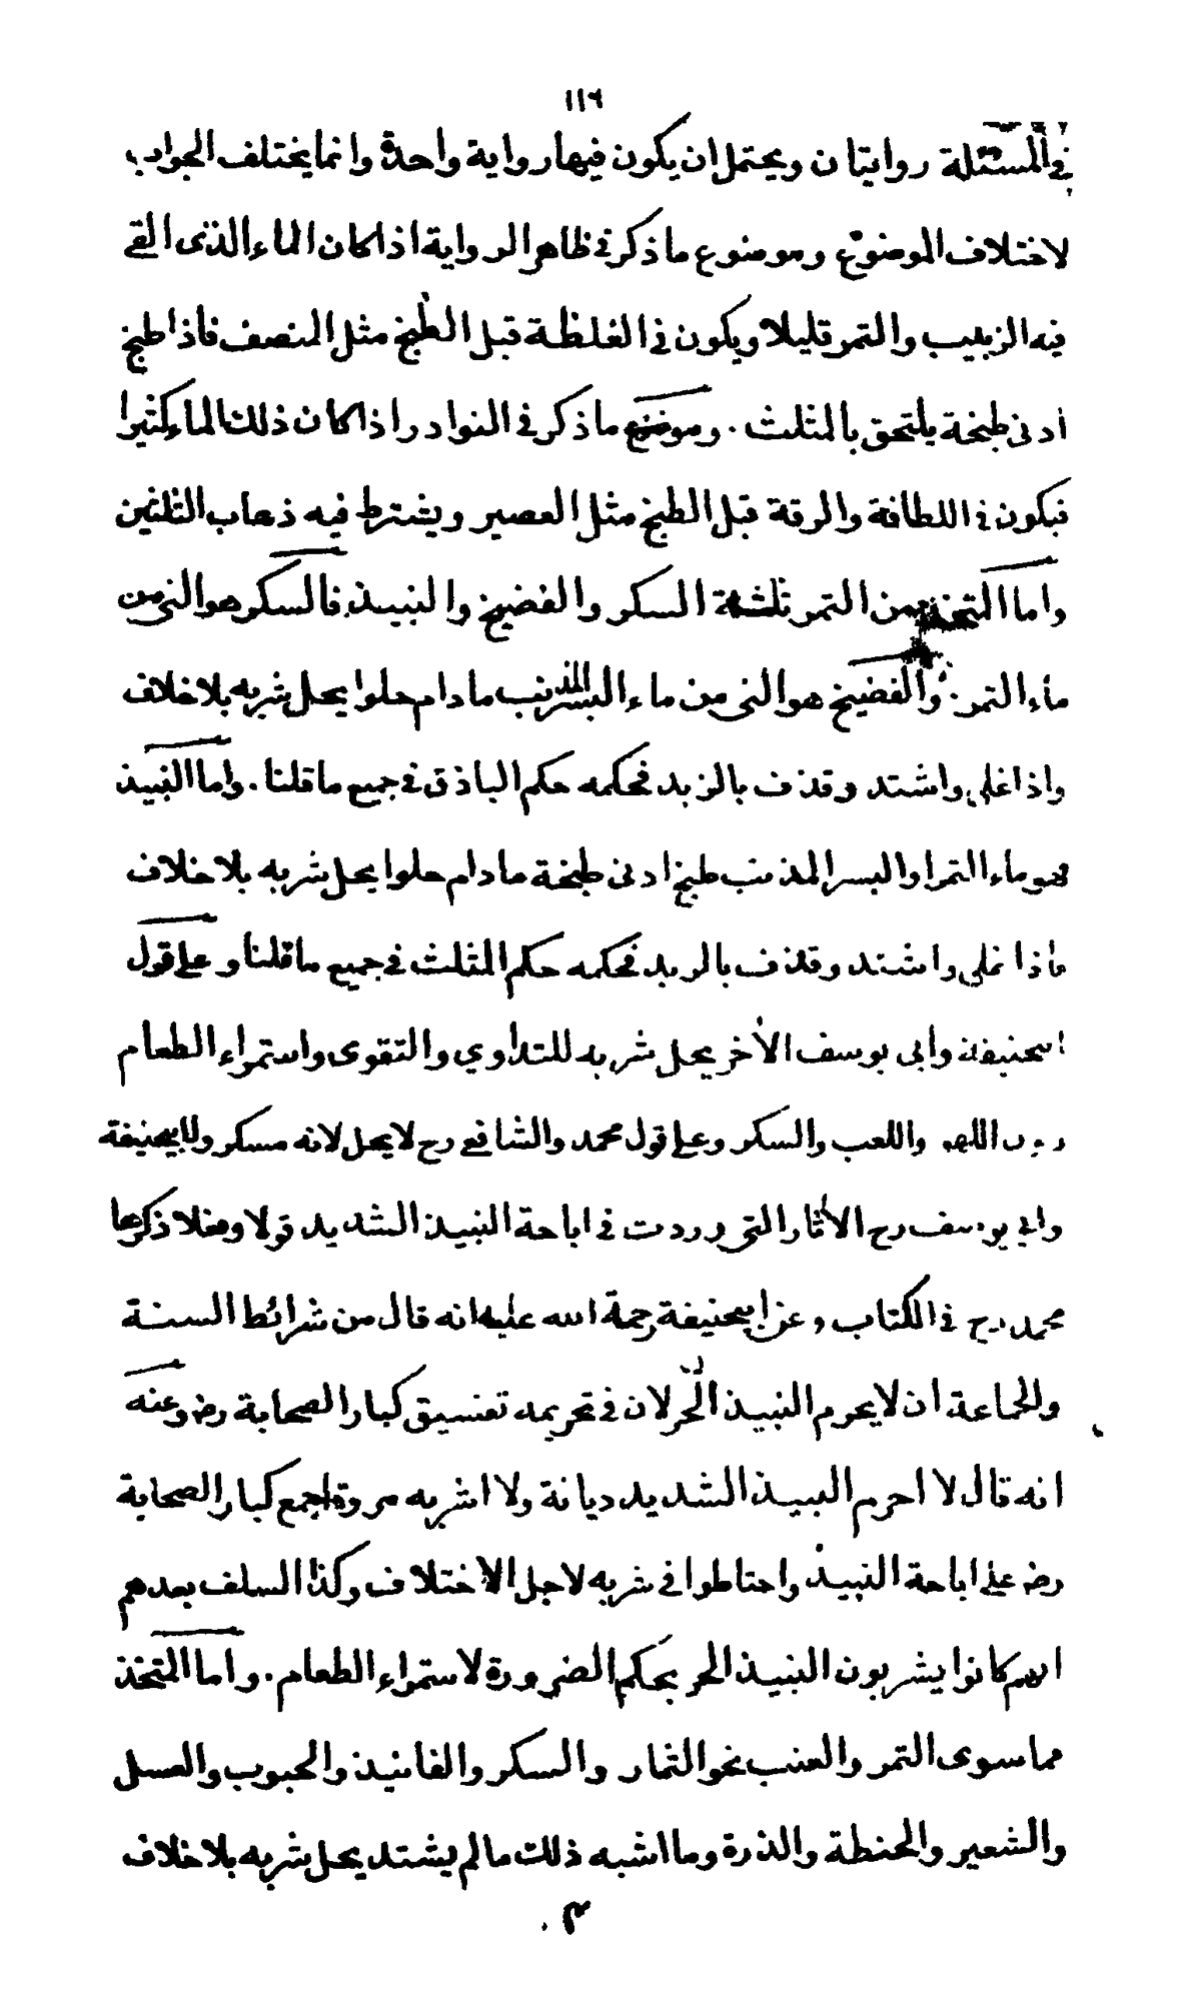 ١١٦
فى المسئلة روايتان ويحتمل ان يكون فيها رواية واحدة وانما يختلف الجواب
لاختلاف الموضوع وموضوع ما ذكر فى ظاهر الرواية اذا كان الماء الذى القى
فيه الزبيب والتمر قليلا ويكون فى الغلظة قبل الطبخ مثل المنصف فاذا طبخ
ادنى طبخة يلتحق بالمثلث . وموضع ما ذكر فى النوادر اذا كان ذلك الماء كثيرا
فيكون فى اللطافة والرقة قبل الطبخ مثل العصير ويشترط فيه ذهاب الثلثين
واما المتخذ من التمر ثلثة السكر والفضيخ والنبيذ فالسكر هو النى من
ماء التمر . والفضيخ هو النى من ماء البسر المذنب ما دام حلوا يحل شربه بلا خلاف
واذا غلى واشتد وقذف بالزبد فحكمه حكم الباذق فى جميع ما قلنا . واما النبيذ
فهو ماء التمر او البسر المذنب طبخ ادنى طبخة ما دام حلوا يحل شربه بلا خلاف
فاذا غلى واشتد وقذف بالزبد فحكمه حكم المثلث فى جميع ما قلنا وعلى قول
ابيحنيفة وابى يوسف الأخر يحل شربه للتداوي والتقوى واستمراء الطعام
دون اللهو واللعب والسكر وعلى قول محمد والشافعى رح لا يحل لانه مسكر ولابيحنيفة
وابى يوسف رح الاثار التى وردت فى اباحة النبيذ الشديد قولا وفعلا ذكرها
محمد رح فى الكتاب وعن ابيحنيفة رحمة الله عليه انه قال من شرائط السنة
والجماعة ان لا يحرم النبيذ الحر لان فى تحريمه تفسيق كبار الصحابة رض وعنه
انه قال لا احرم النبيذ الشديد ديانة ولا اشربه مروة اجمع كبار الصحابة
رض على اباحة النبيذ واحتاطوا فى شربه لاجل الاختلاف وكذا السلف بعدهم
انهم كانوا يشربون النبيذ الحر بحكم الضرورة لاستمراء الطعام . واما المتخذ
مما سوى التمر والعنب نحو الثمار والسكر والفانيذ والحبوب والعسل
والشعير والحنطة والذرة وما اشبه ذلك ما لم يشتد يحل شربه بلا خلاف